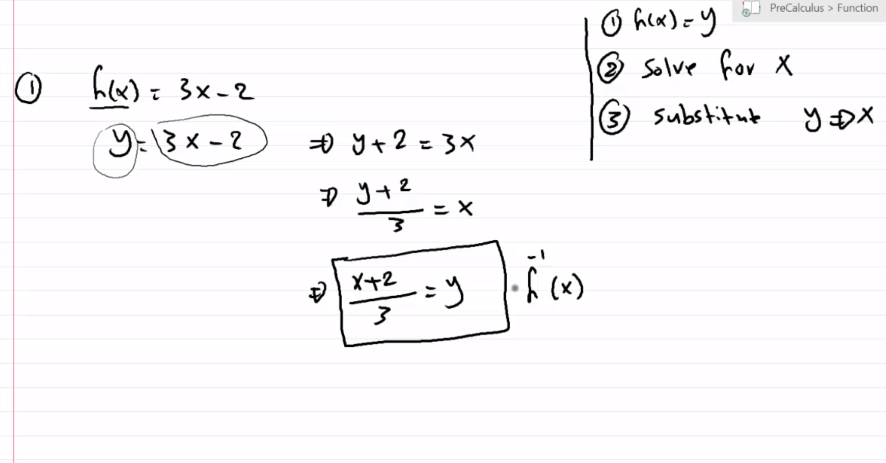 PreCalculus > Function
① f(x) = y
② solve for x
③ substitute y ⇒ x
① f(x) = 3x - 2
y = 3x - 2 ⇒ y + 2 = 3x
⇒ (y+2)/3 = x
⇒ (x+2)/3 = y f⁻¹(x)